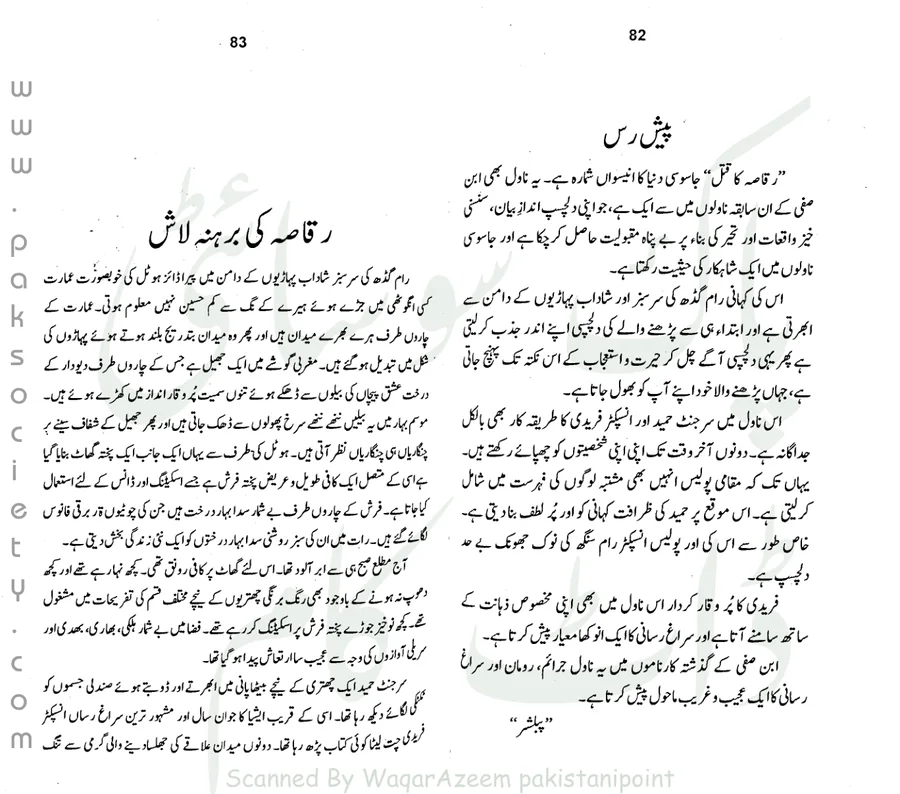 82
پیش رس
”رقاصہ کا قتل“ جاسوسی دنیا کا انیسواں شمارہ ہے۔ یہ ناول بھی ابن
صفی کے ان سابقہ ناولوں میں سے ایک ہے، جو اپنی دلچسپ اندازِ بیان، سنسنی
خیز واقعات اور تحیر کی بناء پر بے پناہ مقبولیت حاصل کرچکا ہے اور جاسوسی
ناولوں میں ایک شاہکار کی حیثیت رکھتا ہے۔
اس کی کہانی رام گڈھ کی سرسبز اور شاداب پہاڑیوں کے دامن سے
ابھرتی ہے اور ابتداء ہی سے پڑھنے والے کی دلچسپی اپنے اندر جذب کرلیتی
ہے پھر یہی دلچسپی آگے چل کر حیرت و استعجاب کے اس نکتہ تک پہنچ جاتی
ہے، جہاں پڑھنے والا خود اپنے آپ کو بھول جاتا ہے۔
اس ناول میں سرجنٹ حمید اور انسپکٹر فریدی کا طریقہ کار بھی بالکل
جداگانہ ہے۔ دونوں آخر وقت تک اپنی اپنی شخصیتوں کو چھپائے رکھتے ہیں۔
یہاں تک کہ مقامی پولیس انہیں بھی مشتبہ لوگوں کی فہرست میں شامل
کرلیتی ہے۔ اس موقع پر حمید کی ظرافت کہانی کو اور پُر لطف بنادیتی ہے۔
خاص طور سے اس کی اور پولیس انسپکٹر رام سنگھ کی نوک جھونک بے حد
دلچسپ ہے۔
فریدی کا پُر وقار کردار اس ناول میں بھی اپنی مخصوص ذہانت کے
ساتھ سامنے آتا ہے اور سراغ رسانی کا ایک انوکھا معیار پیش کرتا ہے۔
ابن صفی کے گذشتہ کارناموں میں یہ ناول جرائم، رومان اور سراغ
رسانی کا ایک عجیب و غریب ماحول پیش کرتا ہے۔
”پبلشر“
83
رقاصہ کی برہنہ لاش
رام گڈھ کی سرسبز شاداب پہاڑیوں کے دامن میں پیراڈائز ہوٹل کی خوبصورت عمارت
کسی انگوٹھی میں جڑے ہوئے ہیرے کے نگ سے کم حسین نہیں معلوم ہوتی۔ عمارت کے
چاروں طرف ہرے بھرے میدان ہیں اور پھر وہ میدان بتدریج بلند ہوتے ہوئے پہاڑوں کی
شکل میں تبدیل ہوگئے ہیں۔ مغربی گوشے میں ایک جھیل ہے جس کے چاروں طرف دیودار کے
درخت عشق پیچاں کی بیلوں سے ڈھکے ہوئے تنوں سمیت پُر وقار انداز میں کھڑے ہوئے ہیں۔
موسم بہار میں یہ بیلیں ننھے ننھے سرخ پھولوں سے ڈھک جاتی ہیں اور پھر جھیل کے شفاف سینے پر
چنگاریاں ہی چنگاریاں نظر آتی ہیں۔ ہوٹل کی طرف سے یہاں ایک جانب ایک پختہ گھاٹ بنایا گیا
ہے اسی کے متصل ایک کافی طویل و عریض پختہ فرش ہے جسے اسکیٹنگ اور ڈانس کے لئے استعمال
کیا جاتا ہے۔ فرش کے چاروں طرف بے شمار سدا بہار درخت ہیں جن کی چوٹیوں پر برقی فانوس
لگائے گئے ہیں۔ رات میں ان کی سبز روشنی سدا بہار درختوں کو ایک نئی زندگی بخش دیتی ہے۔
آج مطلع صبح ہی سے ابر آلود تھا۔ اس لئے گھاٹ پر کافی رونق تھی۔ کچھ نہا رہے تھے اور کچھ
دھوپ نہ ہونے کے باوجود بھی رنگ برنگی چھتریوں کے نیچے مختلف قسم کی تفریحات میں مشغول
تھے۔ کچھ نوخیز جوڑے پختہ فرش پر اسکیٹنگ کررہے تھے۔ فضا میں بے شمار ہلکی، بھاری، بھدی اور
سریلی آوازوں کی وجہ سے عجیب سا ارتعاش پیدا ہوگیا تھا۔
سرجنٹ حمید ایک چھتری کے نیچے بیٹھا پانی میں ابھرتے اور ڈوبتے ہوئے صندلی جسموں کو
ٹکٹکی لگائے دیکھ رہا تھا۔ اسی کے قریب ایشیا کا جوان سال اور مشہور ترین سراغ رساں انسپکٹر
فریدی چت لیٹا کوئی کتاب پڑھ رہا تھا۔ دونوں میدان علاقے کی جھلسا دینے والی گرمی سے تنگ
www.paksociety.com
Scanned By WaqarAzeem pakistanipoint